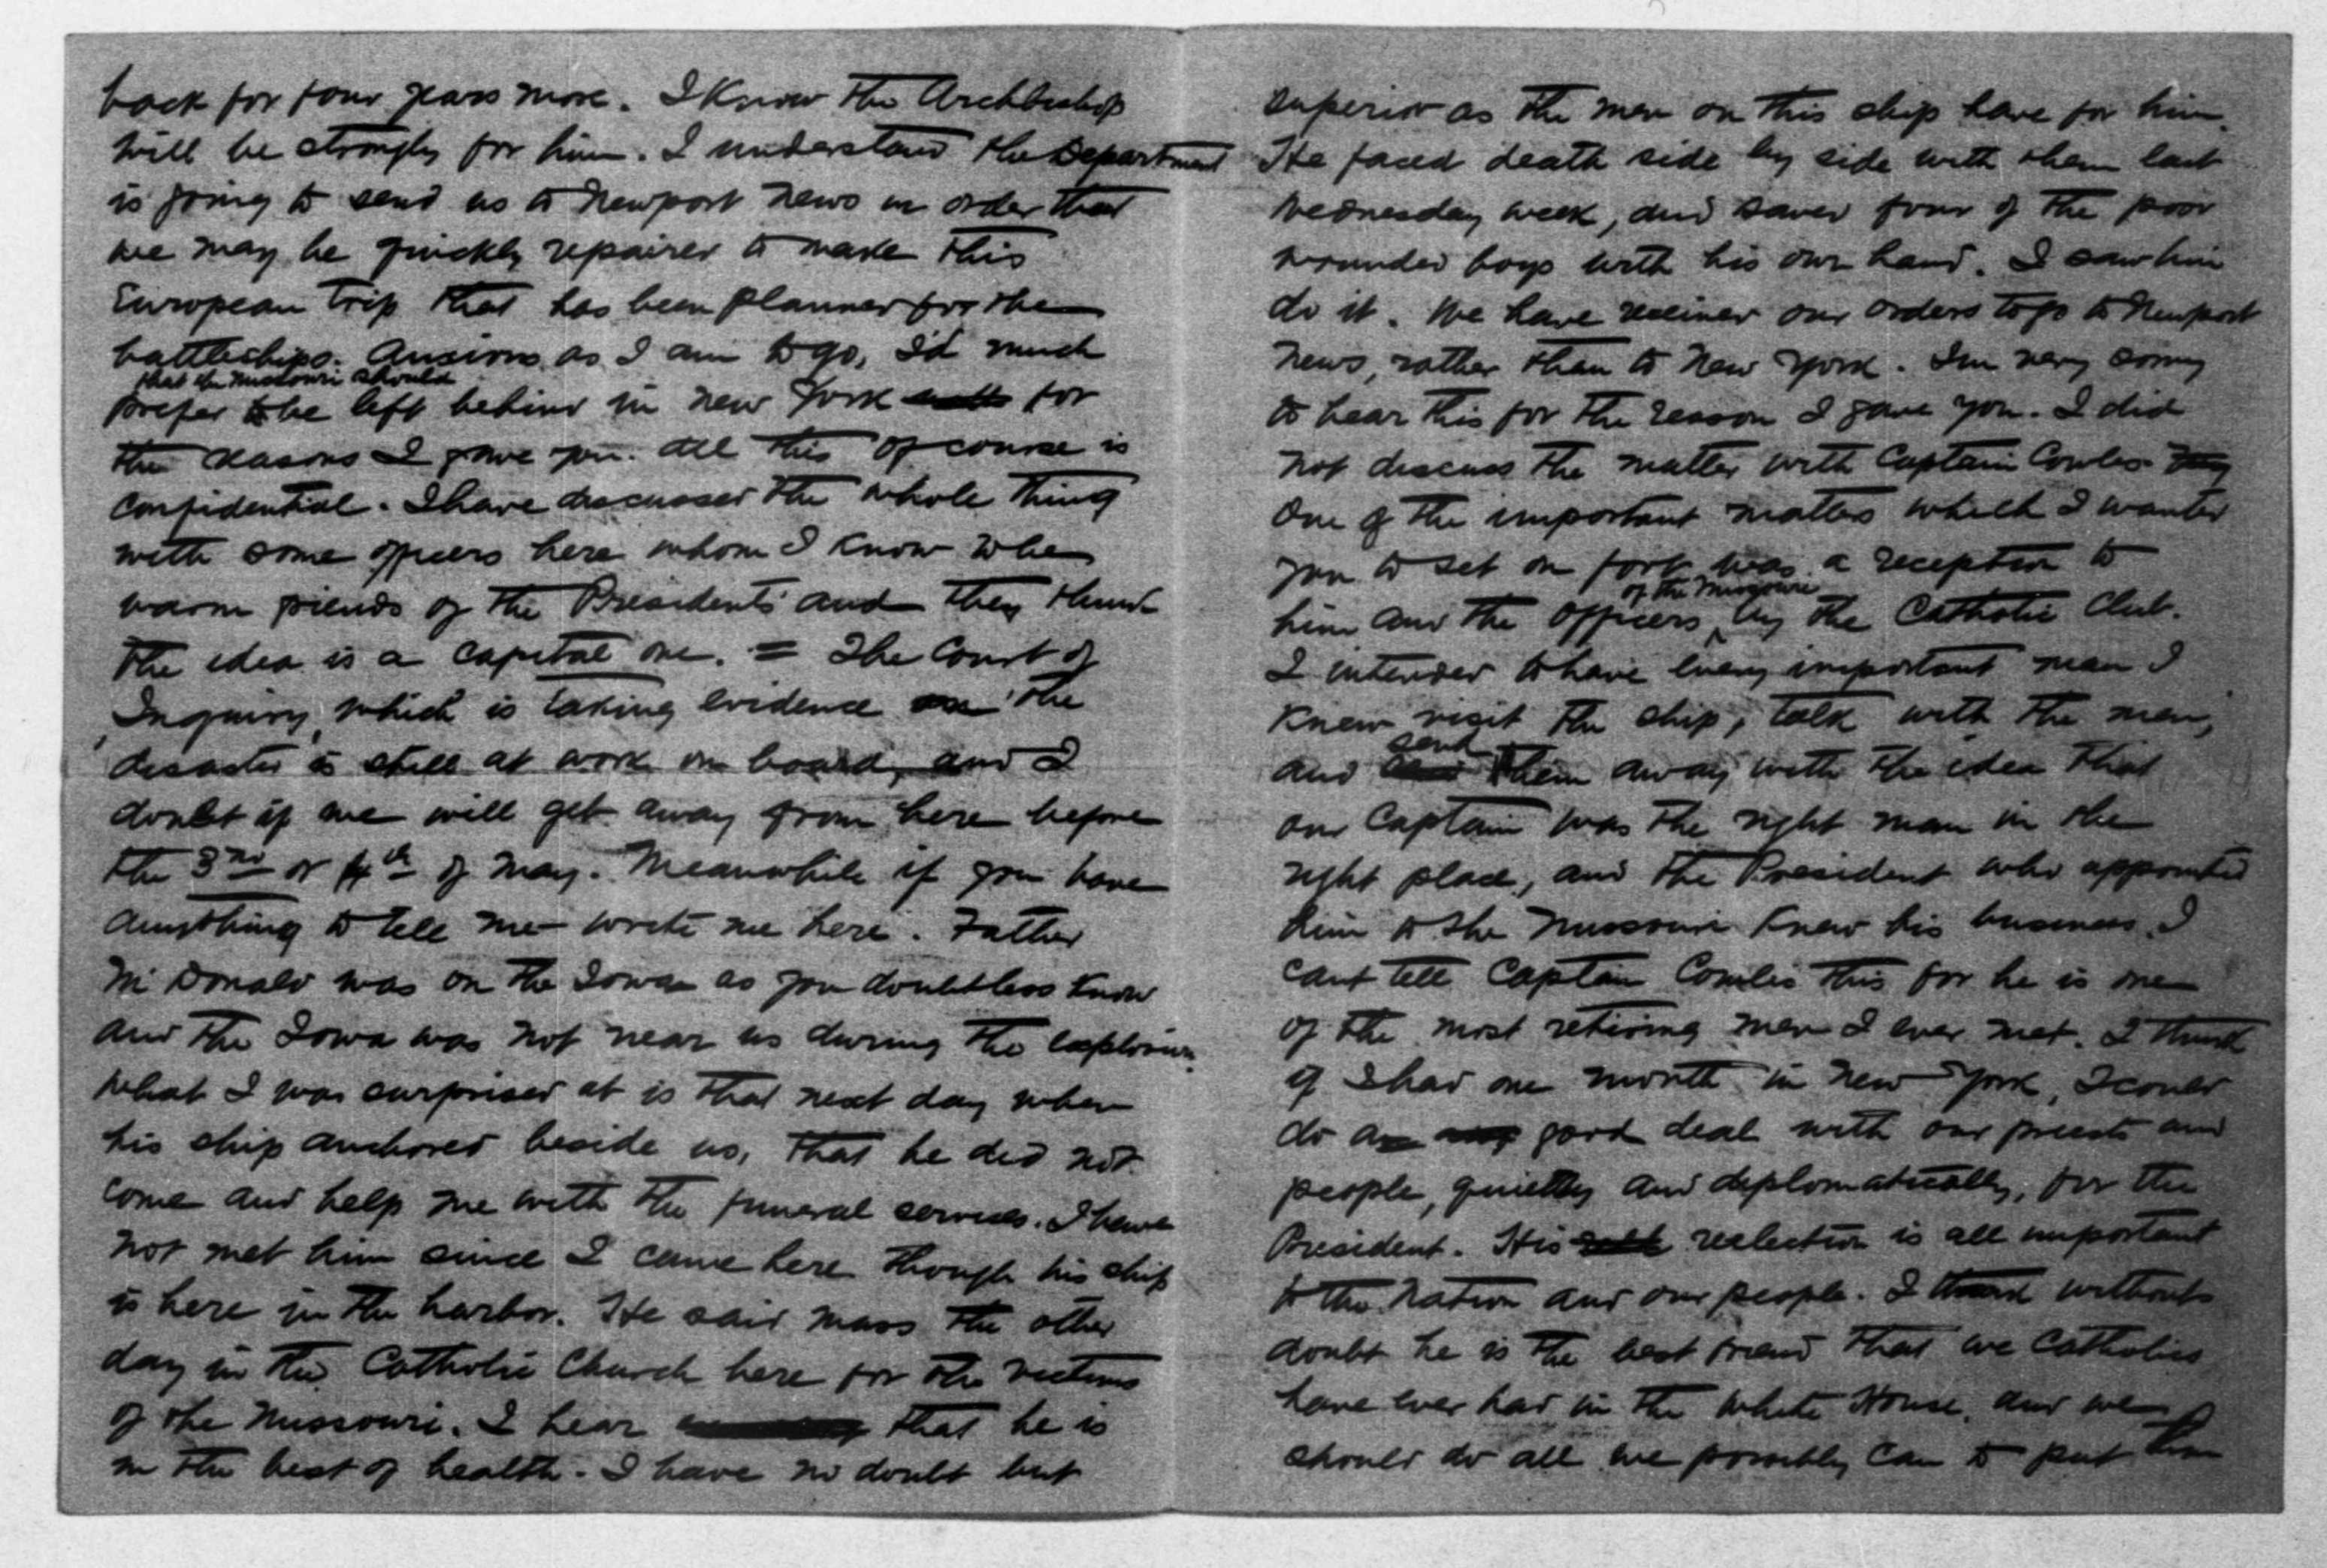 back for four years more. I know the Archbishop
will be strongly for him. I understand the Department
is going to send us to Newport News in order that
we may be quickly repaired to make this
European trip that has been planned for the
battleships. Anxious as I am to go, I'd much
that the Missouri should
prefer to be left behind in New York for
the reasons I gave you. All this of course is
confidential. I have discussed the whole thing
with some officers here whom I know to be
warm friends of the Presidents and they think
the idea is a capital one. = The Court of
Inquiry, which is taking evidence on the
disaster is still at work on board, and I
doubt if we will get away from here before
the 3rd or 4th of May. Meanwhile if you have
anything to tell me write me here. Father
McDonald was on the Iowa as you doubtless know
and the Iowa was not near us during the explosion.
What I was surprised at is that next day when
his ship anchored beside us, that he did not
come and help me with the funeral services. I have
not met him since I came here though his ship
is here in the harbor. He said mass the other
day in the Catholic Church here for the victims
of the Missouri. I hear that he is
in the best of health. I have no doubt but
superior as the men on this ship have for him.
He faced death side by side with them last
Wednesday week, and saved four of the poor
wounded boys with his own hand. I saw him
do it. We have received our orders to go to Newport
News, rather than to New York. I'm very sorry
to hear this for the reason I gave you. I did
not discuss the matter with Captain Cowles
One of the important matters which I wanted
you to set on foot was a reception to
of the Missouri
him and the Officers by the Catholic Club.
I intended to have every important man I
knew visit the ship, talk with the men,
send
and them away with the idea that
our Captain was the right man in the
right place, and the President who appointed
him to the Missouri knew his business. I
cant tell Captain Cowles this for he is one
of the most retiring men I ever met. I think
if I had one month in New York, I could
do a good deal with our priests and
people, quietly and diplomatically, for the
President. His reelection is all important
to the Nation and our people. I think without
doubt he is the best friend that we Catholics
have ever had in the White House, and we
should do all we possibly can to put him